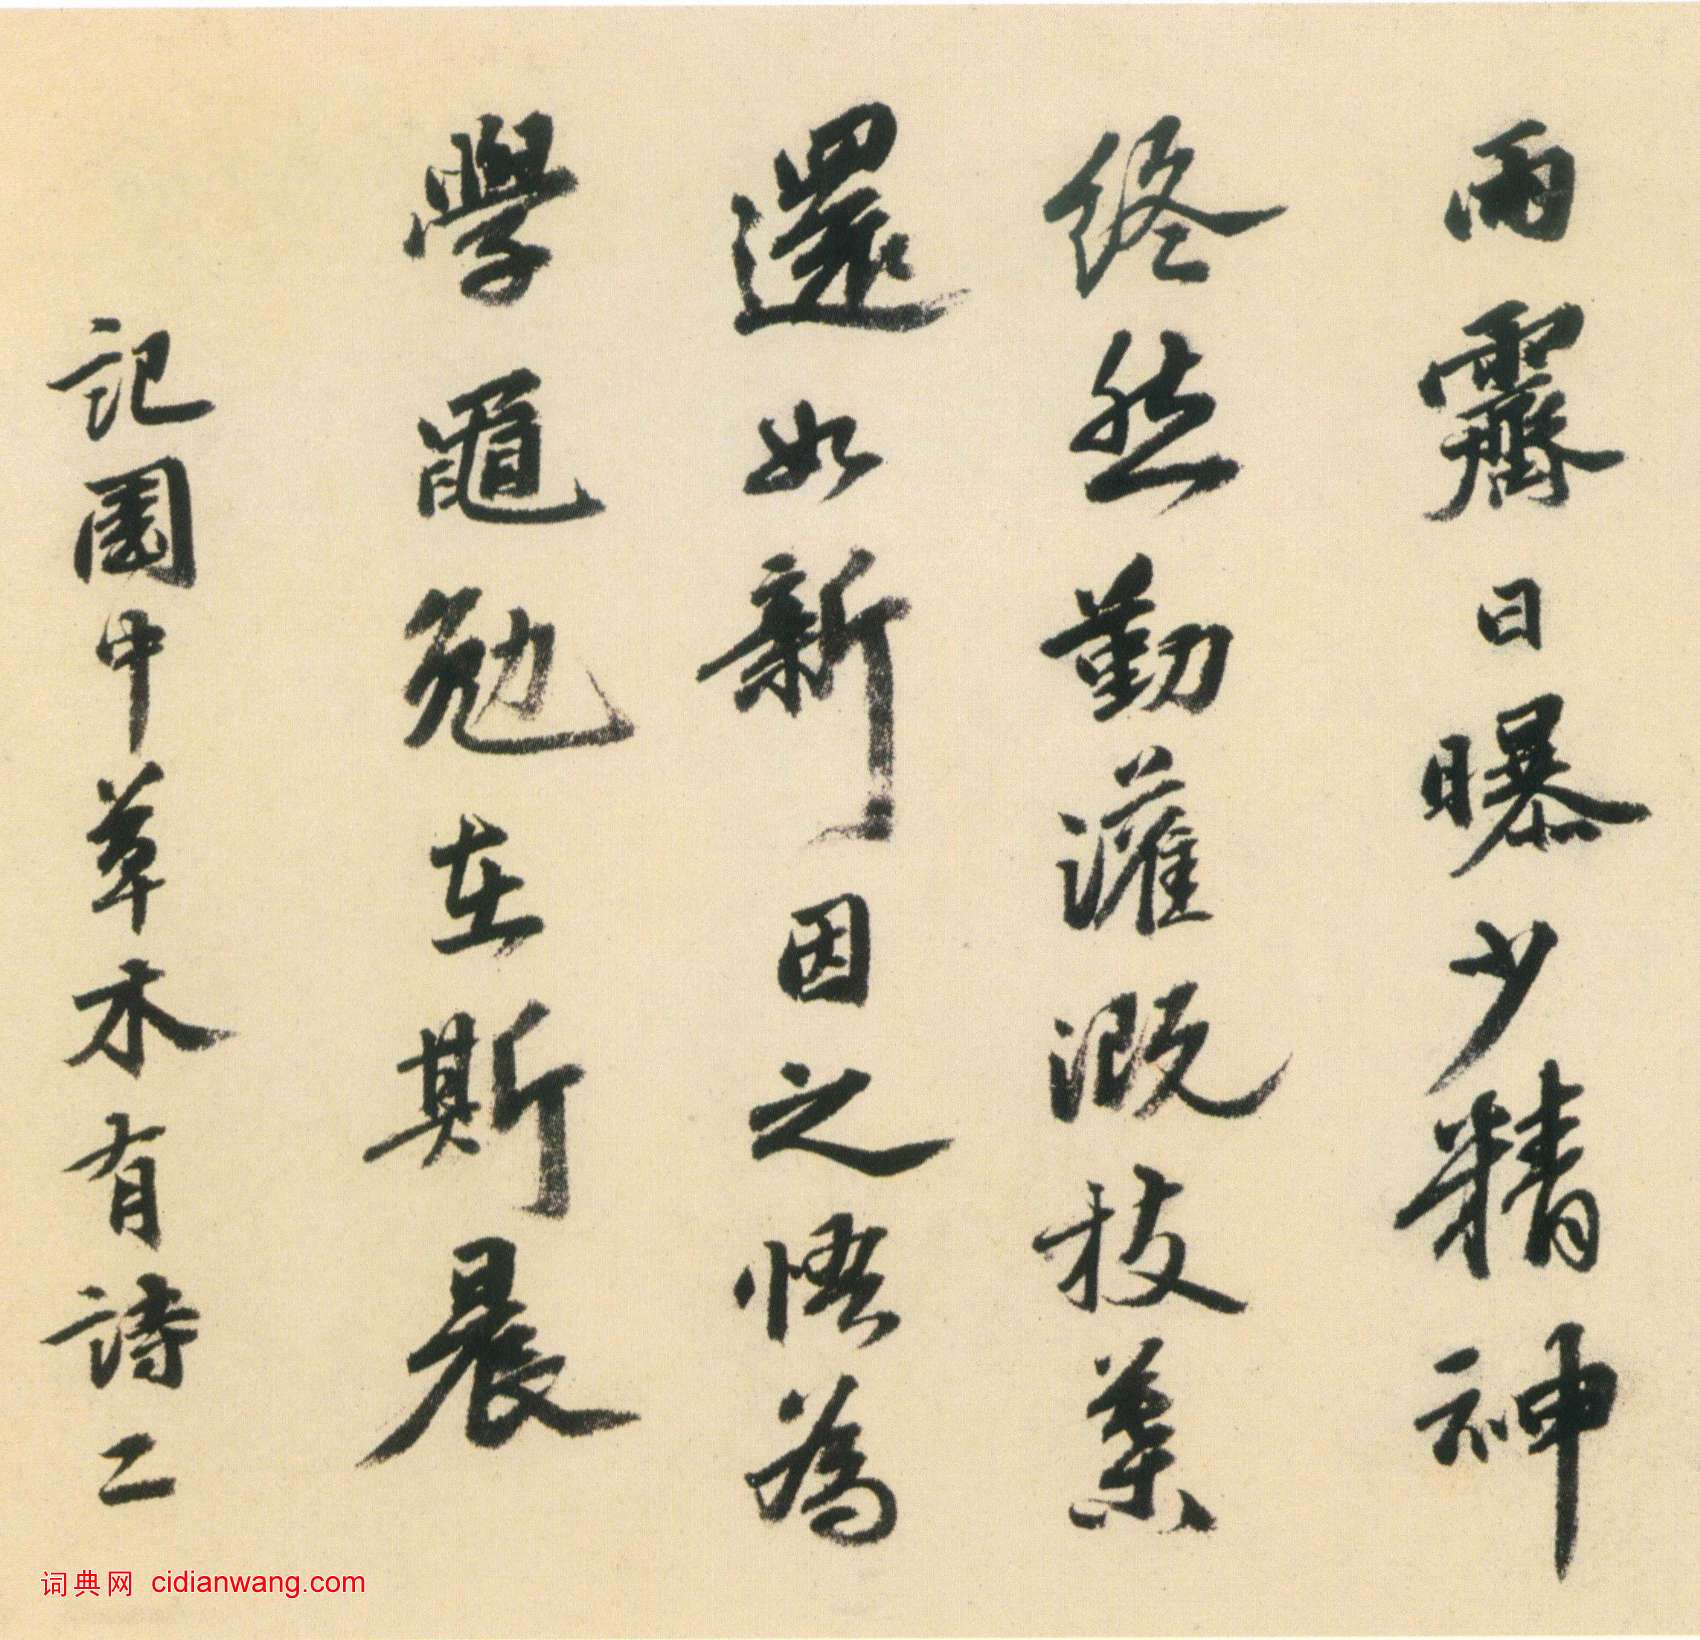 雨霽日曝少精神
終然勤灌溉枝葉
還如新因之悟為
學黽勉在斯晨
記園中草木有詩二
词典网 cidianwang.com